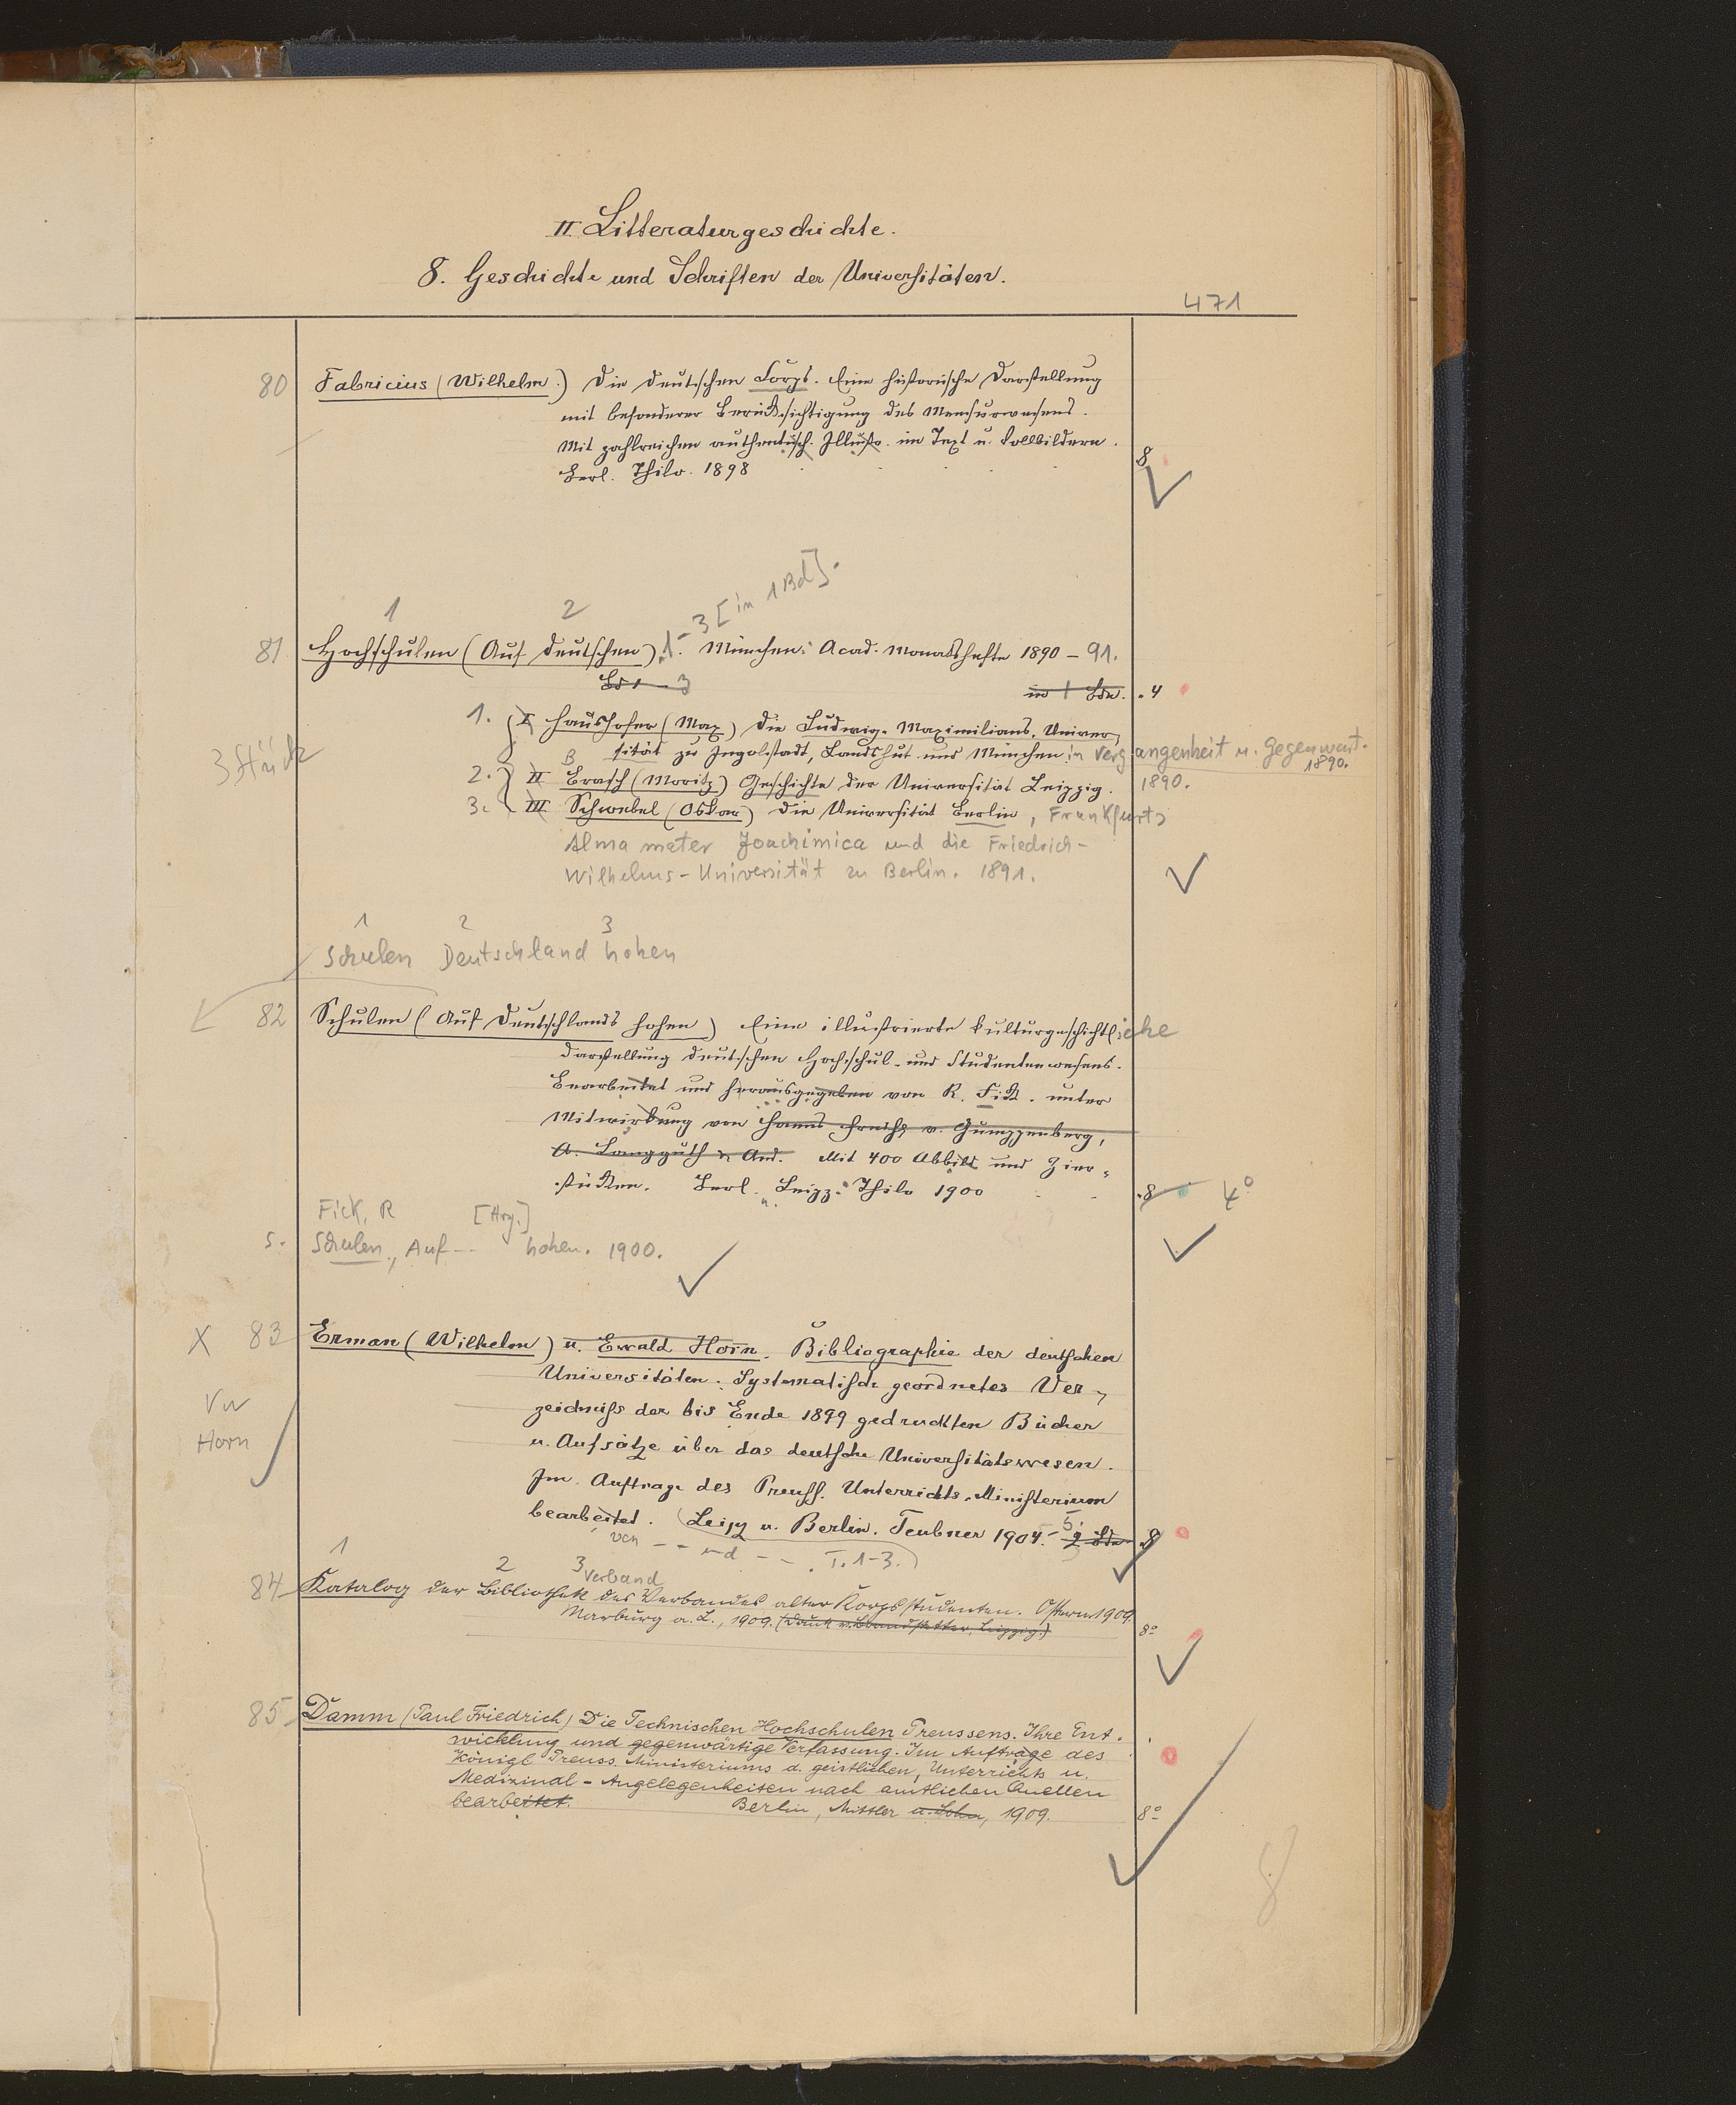 II Litteraturgeschichte.
8. Geschichte und Schriften der Universitäten.
471
80 Fabricius (Wilhelm.) Die deutschen Corps. Eine historische Darstellung
mit besonderer Berücksichtigung des Mensurwesens.
Mit zahlreichen authentisch. Illustr. im Text u. Vollbildern.
Berl. Thilo. 1898 8
1 2 1-3 [in 1 Bd].
81 Hochschulen (Auf deutschen). München: Acad. Monatshefte 1890 - 91.
Bd 1 - 3 in 1 Bdn. 4
3 Stück
1. I Haushofer (Max) Die Ludwig-Maximilians-Univer-
sität zu Ingolstadt, Landshut und München in Vergangenheit u. Gegenwart.
1890.
2. II Brasch (Moritz) Geschichte der Universität Leipzig. 1890.
3. III Schwebel (Oskar) Die Universität Berlin, Frankfurts
Alma mater Joachimica und die Friedrich-
Wilhelms-Universität zu Berlin. 1891.
1 2 3
Schulen Deutschland hohen
82 Schulen (Auf Deutschlands hohen) Eine illustrierte kulturgeschichtliche
Darstellung deutschen Hochschul- und Studentenwesens.
Bearbeitet und herausgegeben von R. Fick. unter
Mitwirkung von Hanns v. Gumppenberg,
A. Langguth u. And. Mit 400 Abbild und Zier-
stücken. Berl. u. Leipz. Thilo 1900 8 4°
Fick, R [Hrg.]
s. Schulen, Auf -- hohen. 1900.
X 83 Erman (Wilhelm) u. Ewald Horn. Bibliographie der deutschen
Universitäten. Systematisch geordnetes Ver-
Vw
zeichniss der bis Ende 1899 gedruckten Bücher
Horn
u. Aufsätze über das deutsche Universitätswesen.
Im Auftrage des Preuss. Unterrichts-Ministerium
bearbeitet. Leipz u. Berlin. Teubner 1904-5. 2 Bde 8
von -- und -- . T. 1-3.
1 2 3 Verband
84 Katalog der Bibliothek des Verbandes alter Korpsstudenten. Ostern 1909.
Marburg a. L., 1909. (Druck v. Brandstetter, Leipzig.) 8°
85 Damm (Paul Friedrich) Die Technischen Hochschulen Preussens. Ihre Ent-
wicklung und gegenwärtige Verfassung. Im Auftrage des
Königl Preuss. Ministeriums d. geistlichen, Unterrichts u.
Medizinal-Angelegenheiten nach amtlichen Quellen
bearbeitet. Berlin, Mittler u. Sohn, 1909. 8°
8